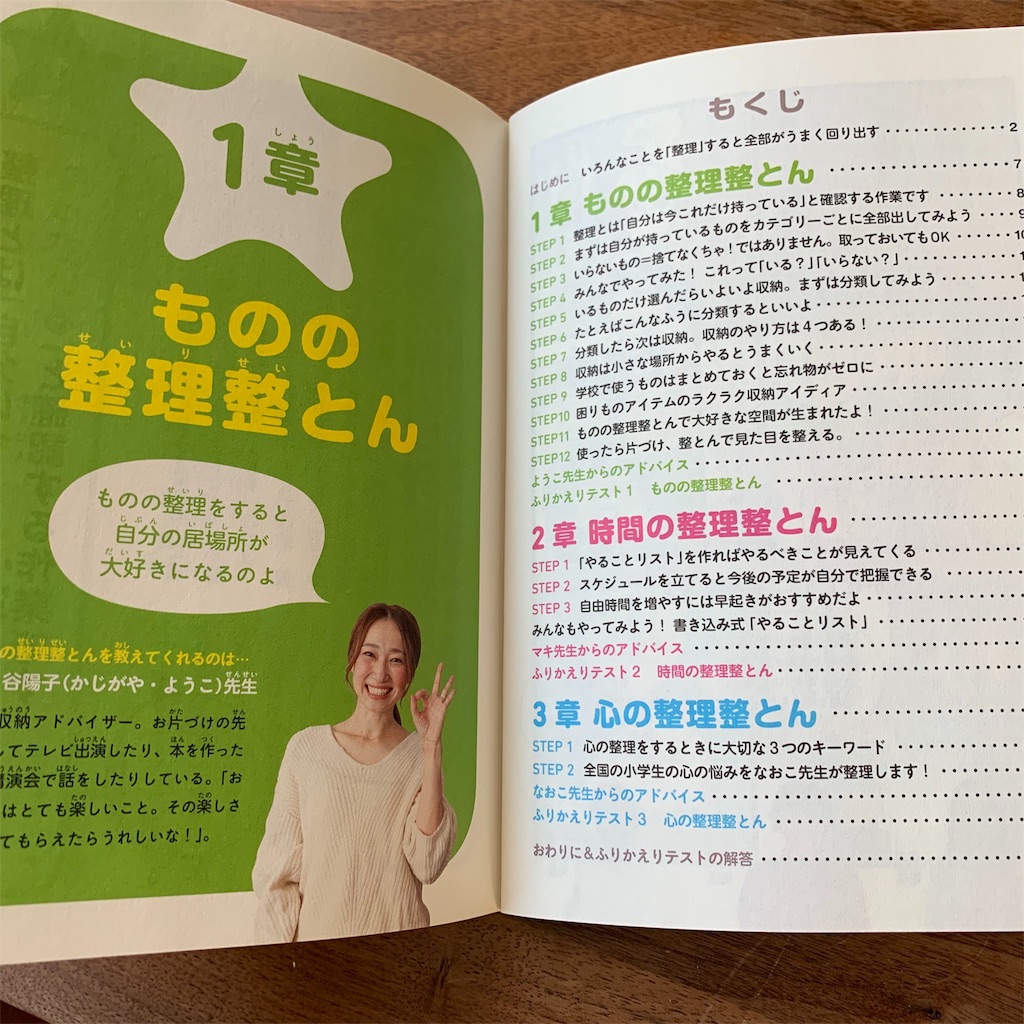 1章
しょう
ものの
整理整とん
せいり せい
ものの整理をすると
せいり
自分の居場所が
じぶん いばしょ
大好きになるのよ
だいす
の整理整とんを教えてくれるのは…
せいりせい おし
谷陽子(かじがや・ようこ)先生
せんせい
収納アドバイザー。お片づけの先
しゅうのう かた せん
してテレビ出演したり、本を作った
しゅつえん ほん つく
講演会で話をしたりしている。「お
うえんかい はなし
はとても楽しいこと。その楽しさ
たの たの
てもらえたらうれしいな!」。
もくじ
はじめに いろんなことを「整理」すると全部がうまく回り出す ・・・・・・・・・・・・・ 2
1章 ものの整理整とん ・・・・・・・・・・・・・・・・・・・ 7
STEP 1 整理とは「自分は今これだけ持っている」と確認する作業です ・・・・・・・・ 8
STEP 2 まずは自分が持っているものをカテゴリーごとに全部出してみよう ・・・・
STEP 3 いらないもの=捨てなくちゃ!ではありません。取っておいてもOK ・・・・・・
STEP 4 みんなでやってみた! これって「いる?」「いらない?」 ・・・・・・・・・・・
STEP 5 いるものだけ選んだらいよいよ収納。まずは分類してみよう ・・・・・・・・
STEP 6 たとえばこんなふうに分類するといいよ ・・・・・・・・・・・・・・・・・・
STEP 7 分類したら次は収納。収納のやり方は4つある! ・・・・・・・・・・・・・・
STEP 8 収納は小さな場所からやるとうまくいく ・・・・・・・・・・・・・・・・・・
STEP 9 学校で使うものはまとめておくと忘れ物がゼロに ・・・・・・・・・・・・・・
STEP10 困りものアイテムのラクラク収納アイディア ・・・・・・・・・・・・・・・・
STEP11 ものの整理整とんで大好きな空間が生まれたよ! ・・・・・・・・・・・・・
STEP12 使ったら片づけ、整とんで見た目を整える。 ・・・・・・・・・・・・・・・・
ようこ先生からのアドバイス ・・・・・・・・・・・・・・・・・・・・・・・・・・・
ふりかえりテスト1 ものの整理整とん ・・・・・・・・・・・・・・・・・・・・・・
2章 時間の整理整とん ・・・・・・・・・・・・・・・・
STEP 1 「やることリスト」を作ればやるべきことが見えてくる ・・・・・・・・・・
STEP 2 スケジュールを立てると今後の予定が自分で把握できる ・・・・・・・・
STEP 3 自由時間を増やすには早起きがおすすめだよ ・・・・・・・・・・・・・・
みんなもやってみよう! 書き込み式「やることリスト」 ・・・・・・・・・・・・・
マキ先生からのアドバイス ・・・・・・・・・・・・・・・・・・・・・・・・・・・
ふりかえりテスト2 時間の整理整とん ・・・・・・・・・・・・・・・・・・・・・
3章 心の整理整とん ・・・・・・・・・・・・・・・・・・
STEP 1 心の整理をするときに大切な3つのキーワード ・・・・・・・・・・・・
STEP 2 全国の小学生の心の悩みをなおこ先生が整理します! ・・・・・・・・・
なおこ先生からのアドバイス ・・・・・・・・・・・・・・・・・・・・・・・・・
ふりかえりテスト3 心の整理整とん ・・・・・・・・・・・・・・・・・・・・・
おわりに&ふりかえりテストの解答 ・・・・・・・・・・・・・・・・・・・・・